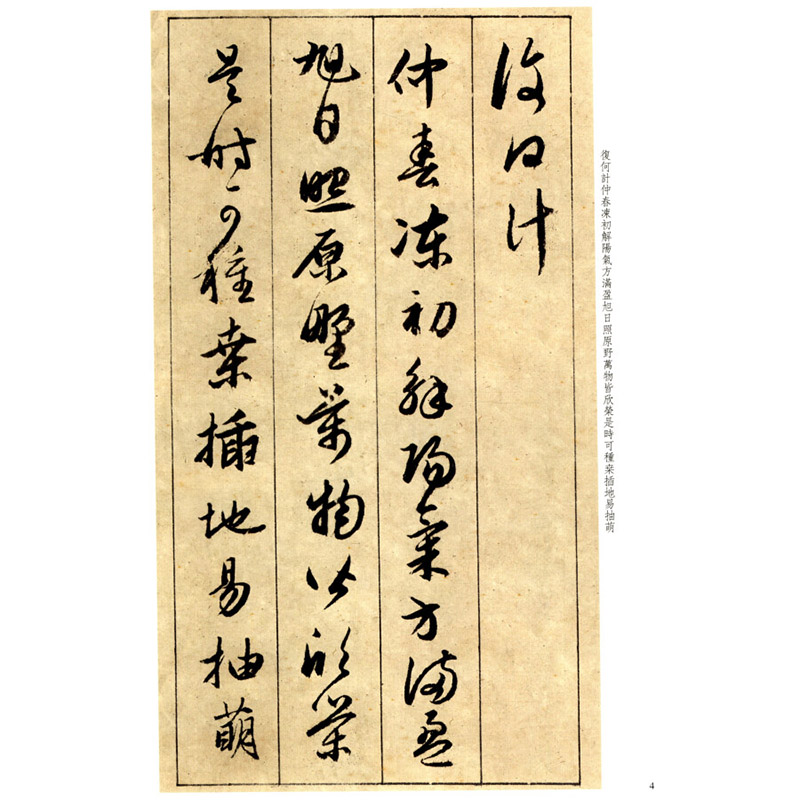 復何計
仲春凍初解陽氣方滿盈
旭日照原野萬物皆欣榮
是時可種桒插地易抽萌
復何計仲春凍初解陽氣方滿盈旭日照原野萬物皆欣榮是時可種桒插地易抽萌
4